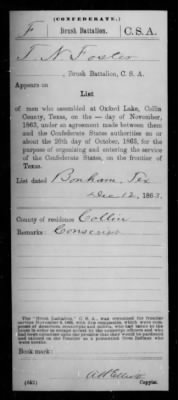 (CONFEDERATE.)
F Brush Battalion. C. S. A.
T. N. Foster
, Brush Battalion, C. S. A.
Appears on
List
of men who assembled at Oxford Lake, Collin
County, Texas, on the — day of November,
1863, under an agreement made between them
and the Confederate States authorities on or
about the 26th day of October, 1863, for the
purpose of organizing and entering the service
of the Confederate States, on the frontier of
Texas.
List dated Bonham, Tex
Dec 12, 1863.
County of residence Collin
Remarks: Conscript
The "Brush Battalion," C. S. A., was organized for frontier
Book mark:
(652) Copyist.